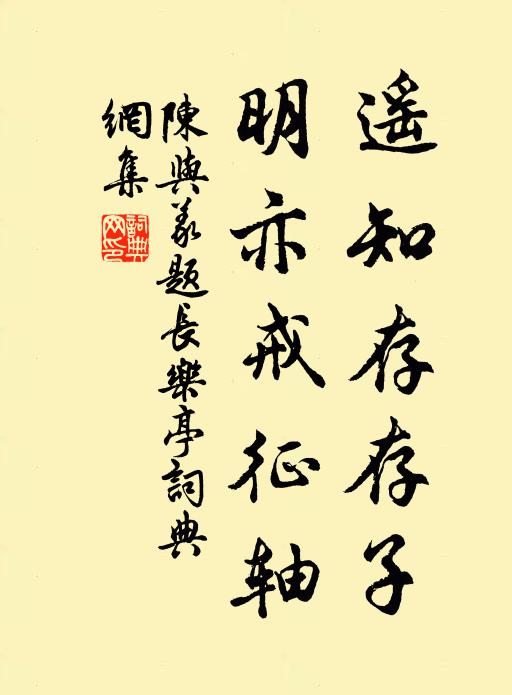 遥知存存子
明亦戒征軸
陳與義題長樂亭詞典
網集
詞典網印